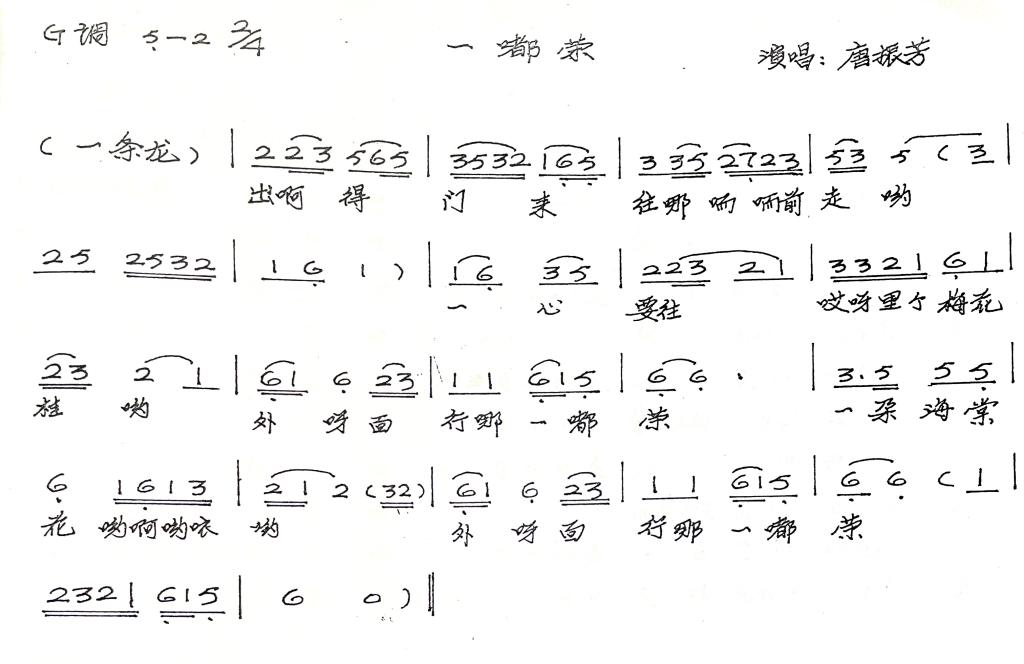 G调 5—2 2/4 一嘟荣 演唱：唐振芳
（一条龙）| 2 2 3 5 6 5 | 3 5 3 2 1 6 5 | 3 3 5 2 7 2 3 | 5 3 5 ( 3 |
出啊 得 门 来 往哪 唡 唡前 走 哟
2 5 2 5 3 2 | 1 6 1 ) | 1 6 3 5 | 2 2 3 2 1 | 3 3 2 1 6 1 |
一 心 要往 哎呀里个 梅花
2 3 2 1 | 6 1 6 2 3 | 1 1 6 1 5 | 6 6 · | 3 . 5 5 5 |
桂 哟 外 呀 面 行那 一 嘟 荣 一 朵 海 棠
6 1 6 1 3 | 2 1 2 ( 3 2 ) | 6 1 6 2 3 | 1 1 6 1 5 | 6 6 ( 1 |
花 哟啊哟依 哟 外 呀 面 行那 一 嘟 荣
2 3 2 1 6 1 5 | 6 0 ) ‖